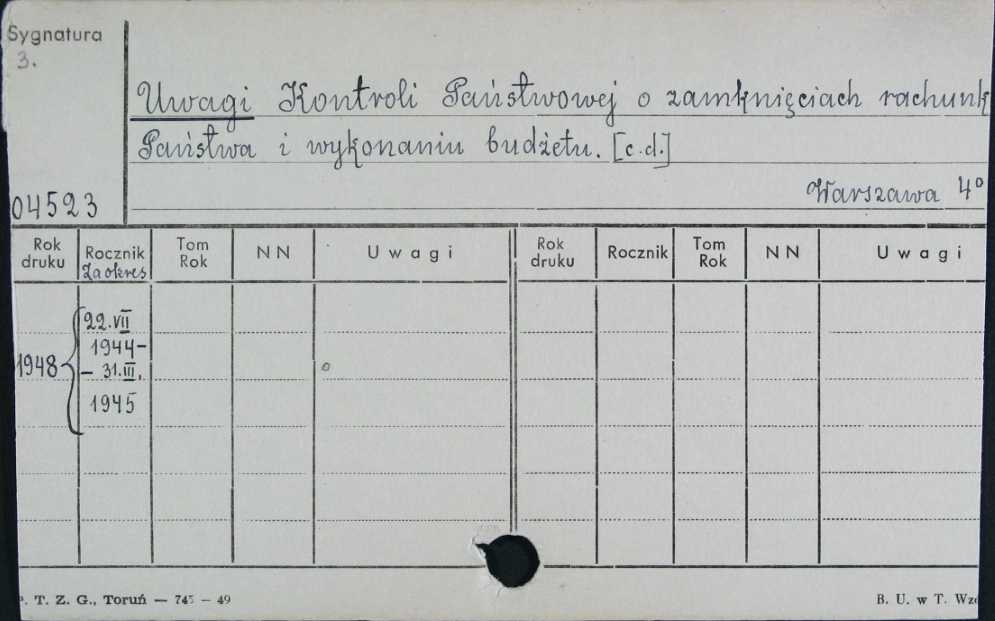 Sygnatura
3.
Uwagi Kontroli Państwowej o zamknięciach rachunk
Państwa i wykonaniu budżetu. [c.d.]
Warszawa 4°
04523
Rok druku Rocznik Tom Rok NN Uwagi Rok druku Rocznik Tom Rok NN Uwagi
Za okres
22.VII
1944-
1948 - 31.III.
1945
T. Z. G., Toruń — 745 — 49
B. U. w T.